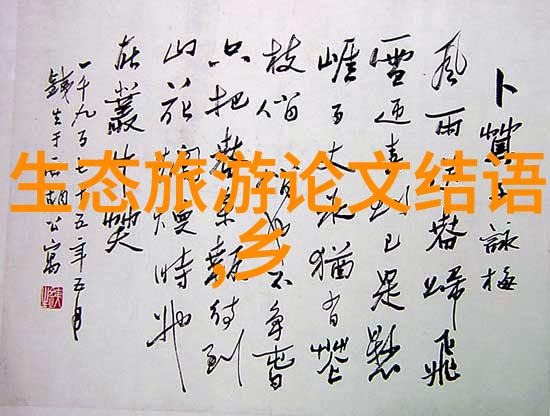 卜算子詠梅
風雨送春歸飛
雪迎春到已是懸
崖百丈冰猶有花
枝俏俏也不爭春
只把春來報待到
山花爛漫時她
在叢中笑
一千九百七十五年五月
于西湖公寓
生态旅游论文结语
,乡